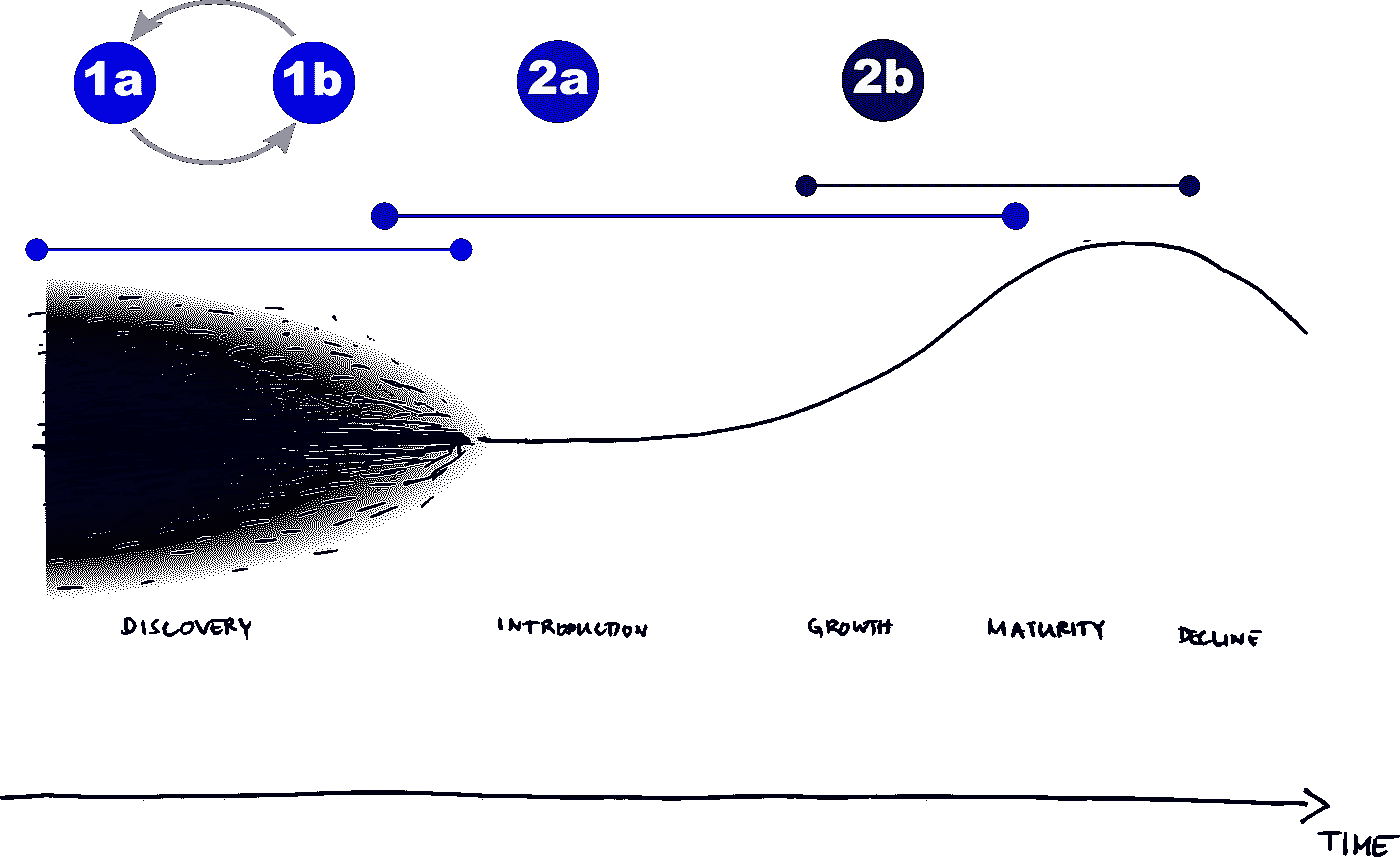 1a 1b 2a 2b
DISCOVERY INTRODUCTION GROWTH MATURITY DECLINE
TIME